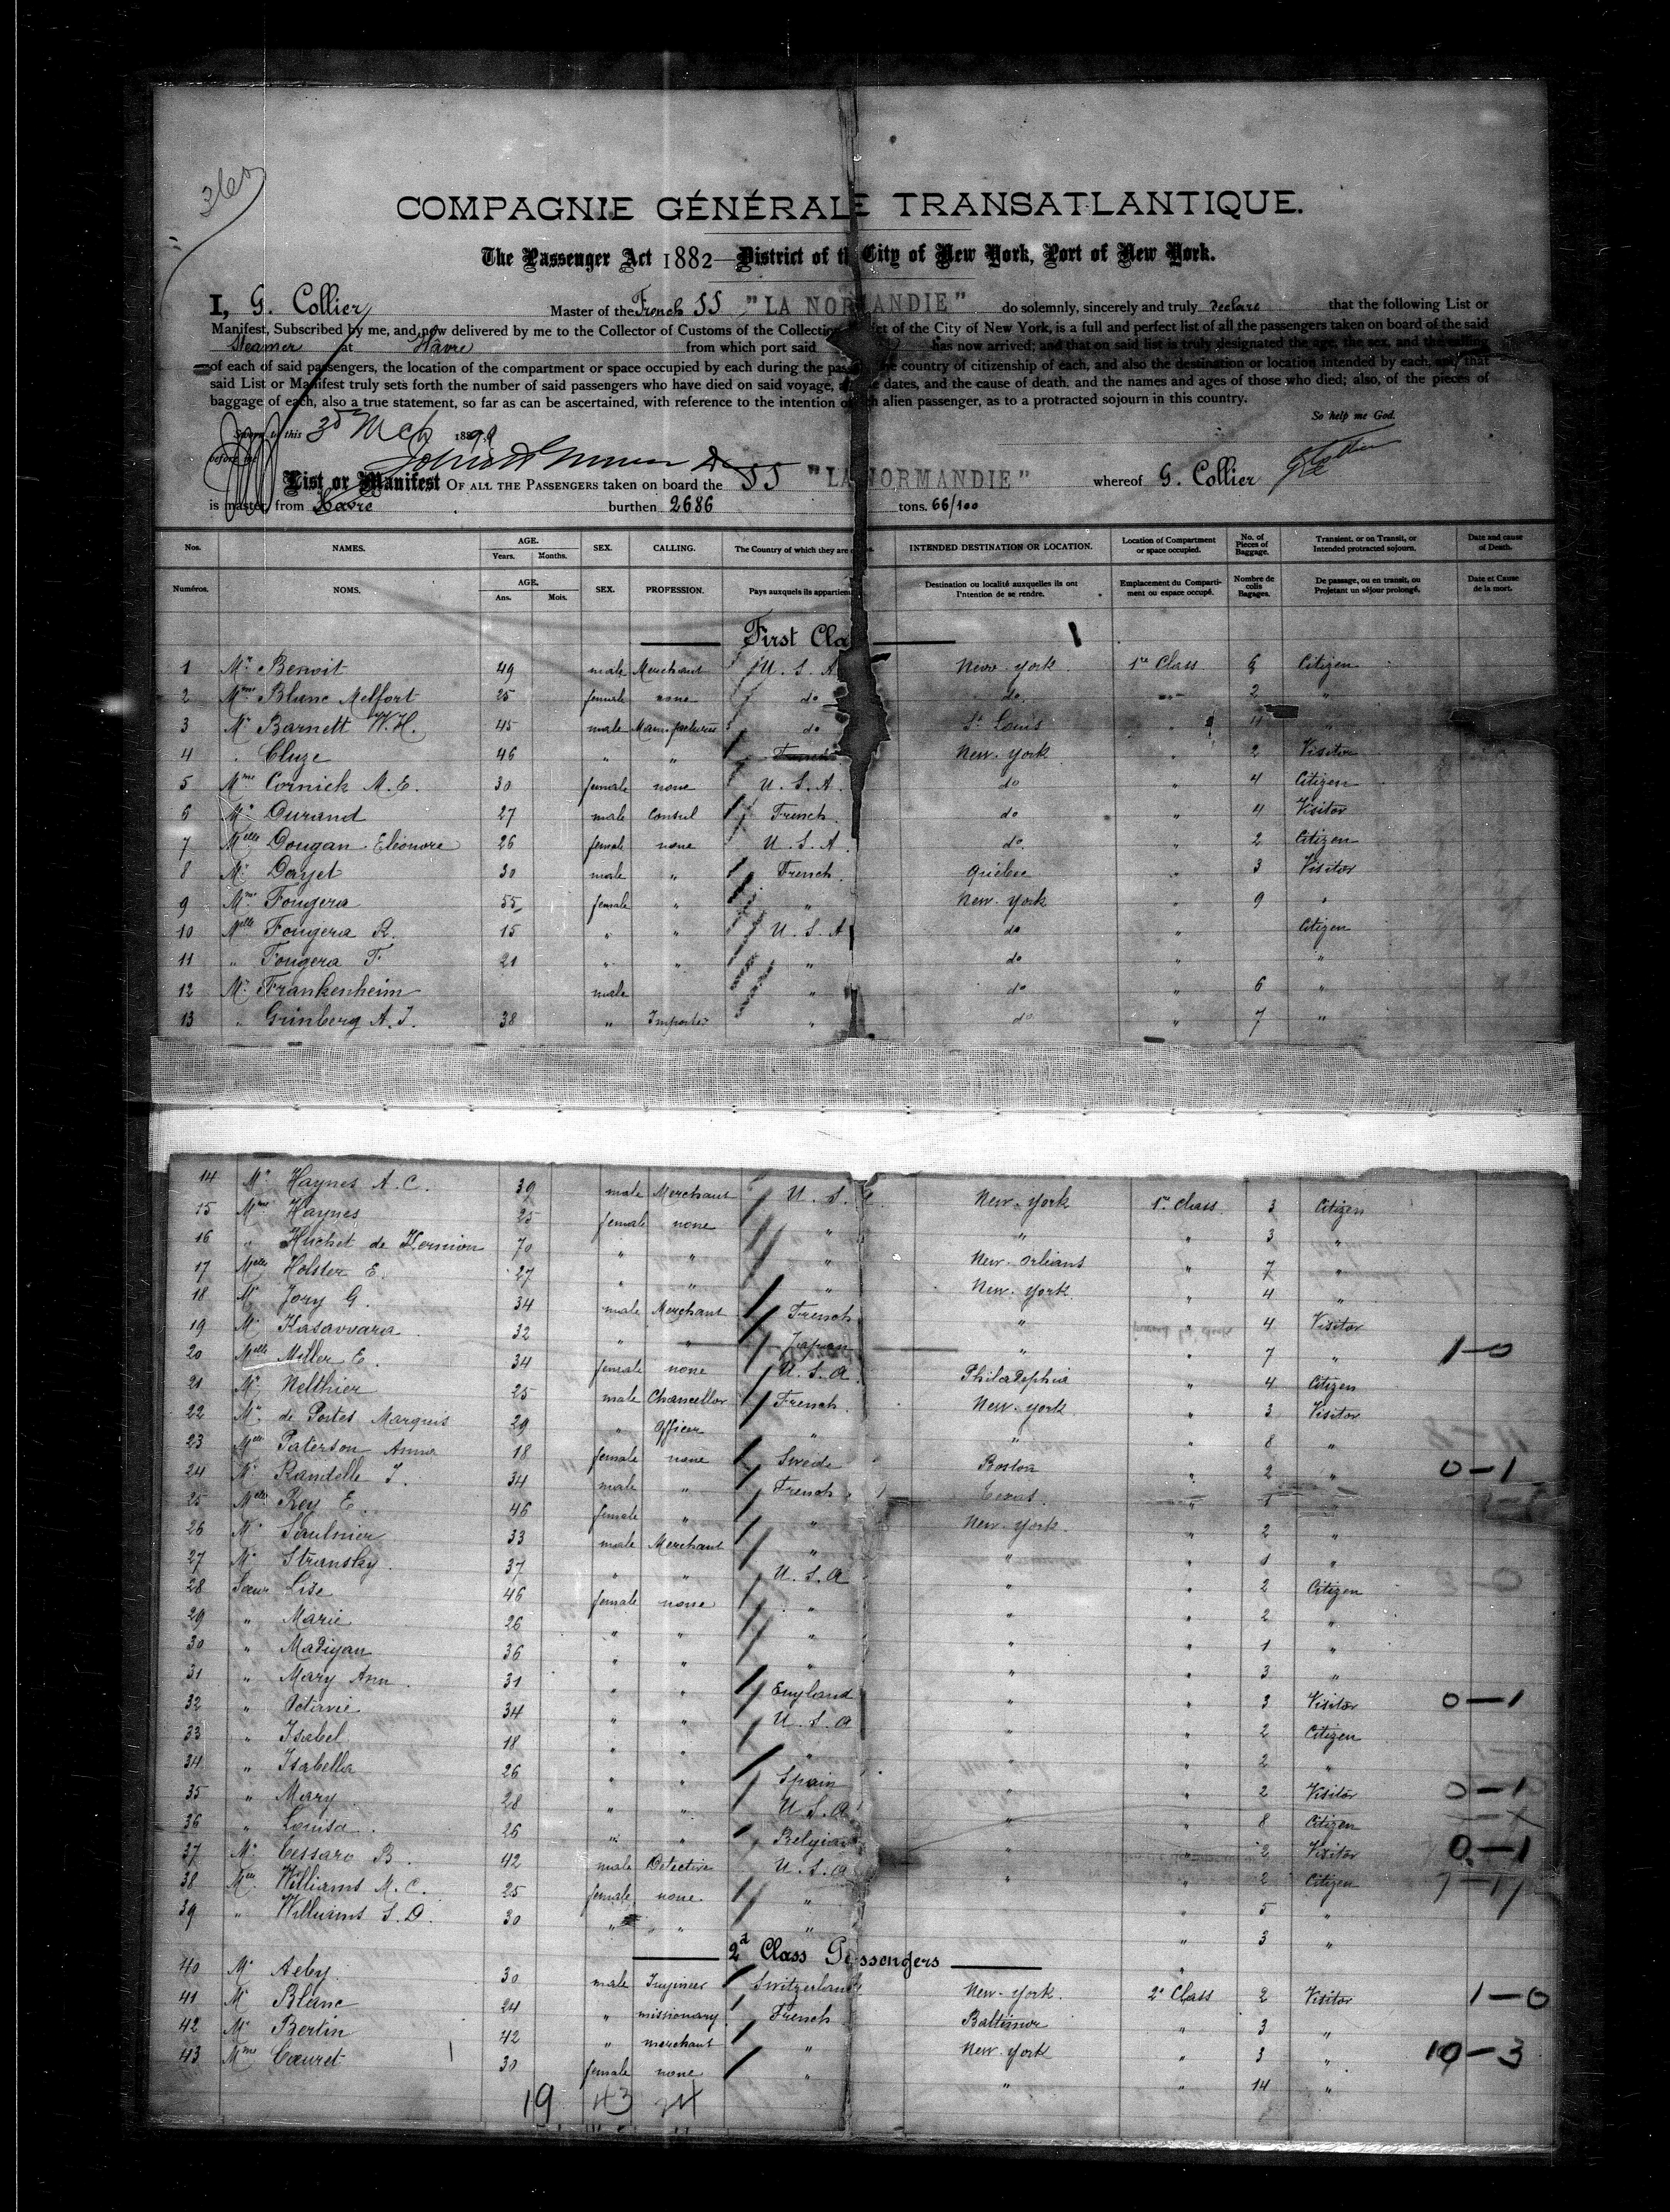 360
COMPAGNIE GÉNÉRALE TRANSATLANTIQUE.
The Passenger Act 1882—District of the City of New York, Port of New York.
I, G. Collier Master of the French SS "LA NORMANDIE" do solemnly, sincerely and truly declare that the following List or
Manifest, Subscribed by me, and now delivered by me to the Collector of Customs of the Collection of the City of New York, is a full and perfect list of all the passengers taken on board of the said
Steamer at Havre from which port said has now arrived; and that on said list is truly designated the age, the sex, and the calling
of each of said passengers, the location of the compartment or space occupied by each during the country of citizenship of each, and also the destination or location intended by each, and that
said List or Manifest truly sets forth the number of said passengers who have died on said voyage, dates, and the cause of death, and the names and ages of those who died; also, of the pieces of
baggage of each, also a true statement, so far as can be ascertained, with reference to the intention of alien passenger, as to a protracted sojourn in this country.
So help me God.
Sworn to this 3d Mch 189
before me
List or Manifest OF ALL THE PASSENGERS taken on board the SS "LA NORMANDIE" whereof G. Collier
is master, from Havre burthen 2686 tons. 66/100
Nos. NAMES. AGE. Years. Months. SEX. CALLING. The Country of which they are INTENDED DESTINATION OR LOCATION. Location of Compartment or space occupied. No. of Pieces of Baggage. Transient, or on Transit, or Intended protracted sojourn. Date and cause of Death.
Numéros. NOMS. AGE. Ans. Mois. SEX. PROFESSION. Pays auxquels ils Destination ou localité auxquelles ils ont l'intention de se rendre. Emplacement du Compartiment ou espace occupé. Nombre de colis Bagages. De passage, ou en transit, ou Projetant un séjour prolongé. Date et Cause de la mort.
First Cla
1 Mr Benoit 49 male Merchant U. S. A New York 1re Class 6 Citizen
2 Mme Blanc Melfort 25 female none do do 2 "
3 Mr Barnett W.H. 45 male do St Louis " 11 "
4 " Cluze 46 " " French New York " 2 Visitor
5 Mme Cornick M. E. 30 female none U. S. A. do " 4 Citizen
6 Mr Durand 27 male Consul French do " 4 Visitor
7 Melle Dougan Eleonore 26 female none U. S. A. do " 2 Citizen
8 Mr Dayet 30 male " French Quebec " 3 Visitor
9 Mme Fougera 55 female " " New York " 9 "
10 Melle Fougera R. 15 " " U. S. A do " Citizen
11 " Fougera F. 21 " " " do " "
12 Mr Frankenheim male " do " 6 "
13 " Grinberg A. J. 38 " Importer " do " 7 "
14 Mr Haynes A. C. 39 male Merchant U. S. New York 1re Class 3 Citizen
15 Mme Haynes 25 female none " " " 3 "
16 " Huchet de Kernion 70 " " " New Orleans " 7 "
17 Melle Holster E. 27 " " " New York " 4 "
18 Mr Jory G. 34 male Merchant French " " 4 Visitor
19 Mr Kasavvara 32 " " Japan " " 7 " 1-0
20 Melle Miller E. 34 female none U. S. A. Philadelphia " 4 Citizen
21 Mr Nelthier 25 male Chancellor French New York " 3 Visitor
22 Mr de Portes Marquis 29 " Officer " " " 8 "
23 Melle Paterson Anna 18 female none Swede Boston " 2 " 0-1
24 Mr Randelle J. 34 male " French Texas " 1 "
25 Melle Rey E. 46 female " " New York " 2 "
26 Mr Saulnier 33 male Merchant " " " 1 "
27 Mr Stransky 37 " " U. S. A " " 2 Citizen
28 Soeur Lise 46 female none " " " 2 "
29 " Marie 26 " " " " " 1 "
30 " Madigan 36 " " " " " 3 "
31 " Mary Ann 31 " " England " " 3 Visitor 0-1
32 " Octavie 34 " " U. S. A " " 2 Citizen
33 " Isabel 18 " " " " " 2 "
34 " Isabella 26 " " Spain " " 2 Visitor 0-1
35 " Mary 28 " " U. S. A " " 8 Citizen
36 " Louisa 26 " " Belgian " " 2 Visitor 0-1
37 Mr Cessaro B. 42 male Detective U. S. A " " 2 Citizen
38 Williams M. C. 25 female none " " 5 "
39 " Williams S. D. 30 " " " " 3 "
2d Class Passengers
40 Mr Aeby 30 male Ingineer Switzerland New York. 2e Class 2 Visitor 1-0
41 Mr Blanc 24 " missionary French Baltimor " 3 "
42 Mr Bertin 42 " merchant " New York " 3 " 10-3
43 Mme Cauret 30 female none " " " 14 "
19 43 24